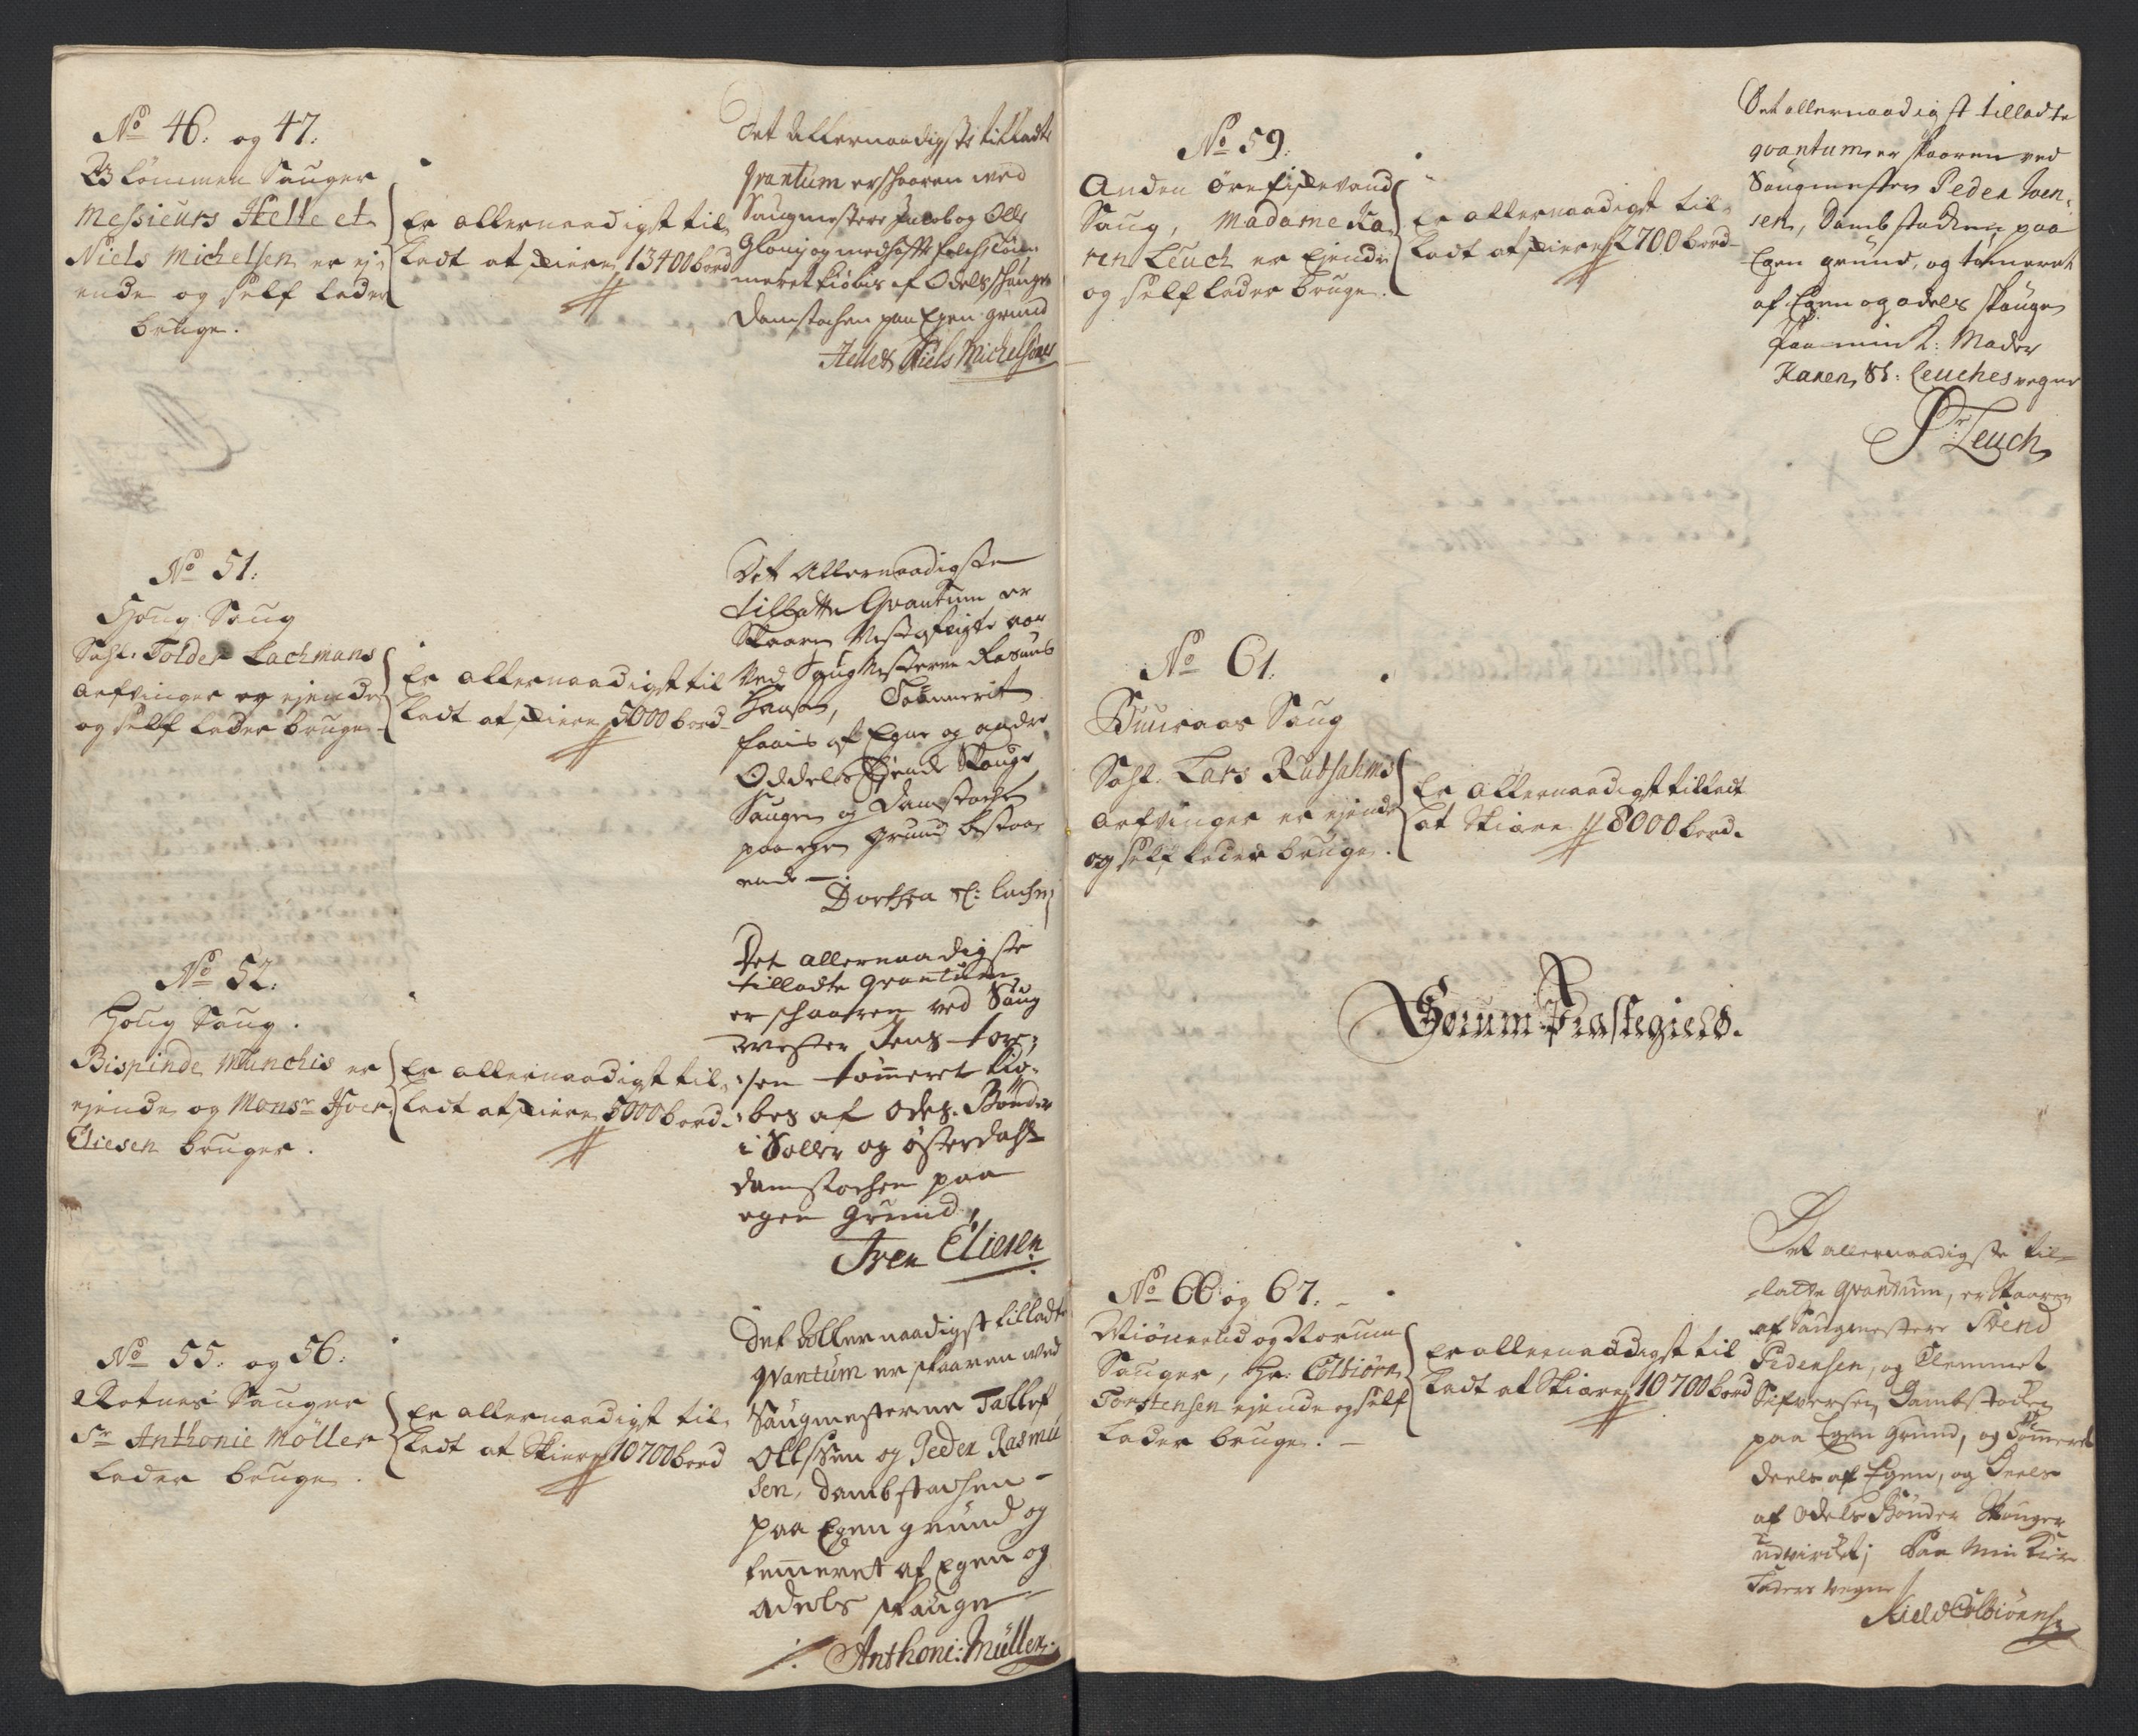 No 46. og 47.
Blommen Sauger
Messieurs Helle et
Niels Michelsen er ej-
ende og self lader
bruge.
Er allernaadigst til-
ladt at skiere 13400 bord
Det allernaadigste tilladte
qvantum er schaaren med
Saugmestere Jacob og Olle
meret kiøbes af Odels schauge
Damstochen paa Egen grund
Helle & Niels Michelsøner
No 51.
Houg Saug
Sahl. Tolder Lachmans
arfvinger er ejende
og self lader bruge.
Er allernaadigst til
ladt at skiere 5000 bord
Det Allernaadigste
tilladte Qvantum er
Skaaren
Ved Saug Mesteren Rasmus
Hansen, Tømmerit
faais af Egne og andre
Oddels Skouge
Saugen og Damstochen
paa egen grund bestaa-
ende.
Dorthea Sl: Lachm
No 52.
Houg Saug.
Bispinde Munchis er
ejende og Monsr Iver
Eliesen bruger.
Er allernaadigst til-
ladt at skiere 5000 bord
Det allernaadigste
tilladte qvantum
er schaaren ved Saug
mester Jens Tore-
sen tømmeret kiø-
bes af Odels Bønder
i Solløer og Østerdahl
damstochen paa
egen grund,
Iver Eliesen
No 55. og 56.
Rotnes Sauger
Sr Anthonie Møller
lader bruge.
Er allernaadigst til-
ladt at Skiere 10700 bord
Det Allernaadigst tilladte
qvantum er skaaren ved
Saugmesterne Tollef
Ollssen og Peder Rasmu
sen, dambstachen
paa Egen grund og
temmeret af egen og
adels skauge
Anthoni: Müller
No 59.
Anden Ørefiskevand
Saug, Madame Ka-
ren Leuch er Ejende
og self lader bruge.
Er allernaadigst til-
ladt at skiere 2700 bord
Det allernaadigst tilladte
qvantum er skaaren ved
Saugmester Peder Iven-
sen, Dambstachen paa
Egen grund, og tømeret
af Egen og odels skauge
Paa min K: Moder
Karen Sl: Leuches vegne
Pr Leuch
No 61.
Buuraas Saug
Sahl. Lars Rubsahms
arfvinger er ejende
og self lader bruge.
Er allernaadigst tilladt
at Skiere 8000 bord.
Sørum Præstegield.
No 66 og 67.
Miønelid og Rorum
Sauger, Hr. Colbiørn
Torstensen ejende og self
lader bruge.
Er allernaadigst til
ladt at Skiere 10700 bord
Det allernaadigste til-
ladte qvantum, er Skaaren
af Saugmestere Svend
Pedersen, og Clemmet
Sifversen, Dambstocken
paa Egen Grund, og Tømmeret
deels af Egen, og Deels
af Odels Bønder Skouger
udvirket; Paa Min Kiere
Faders vegne
Kield Colbiørns